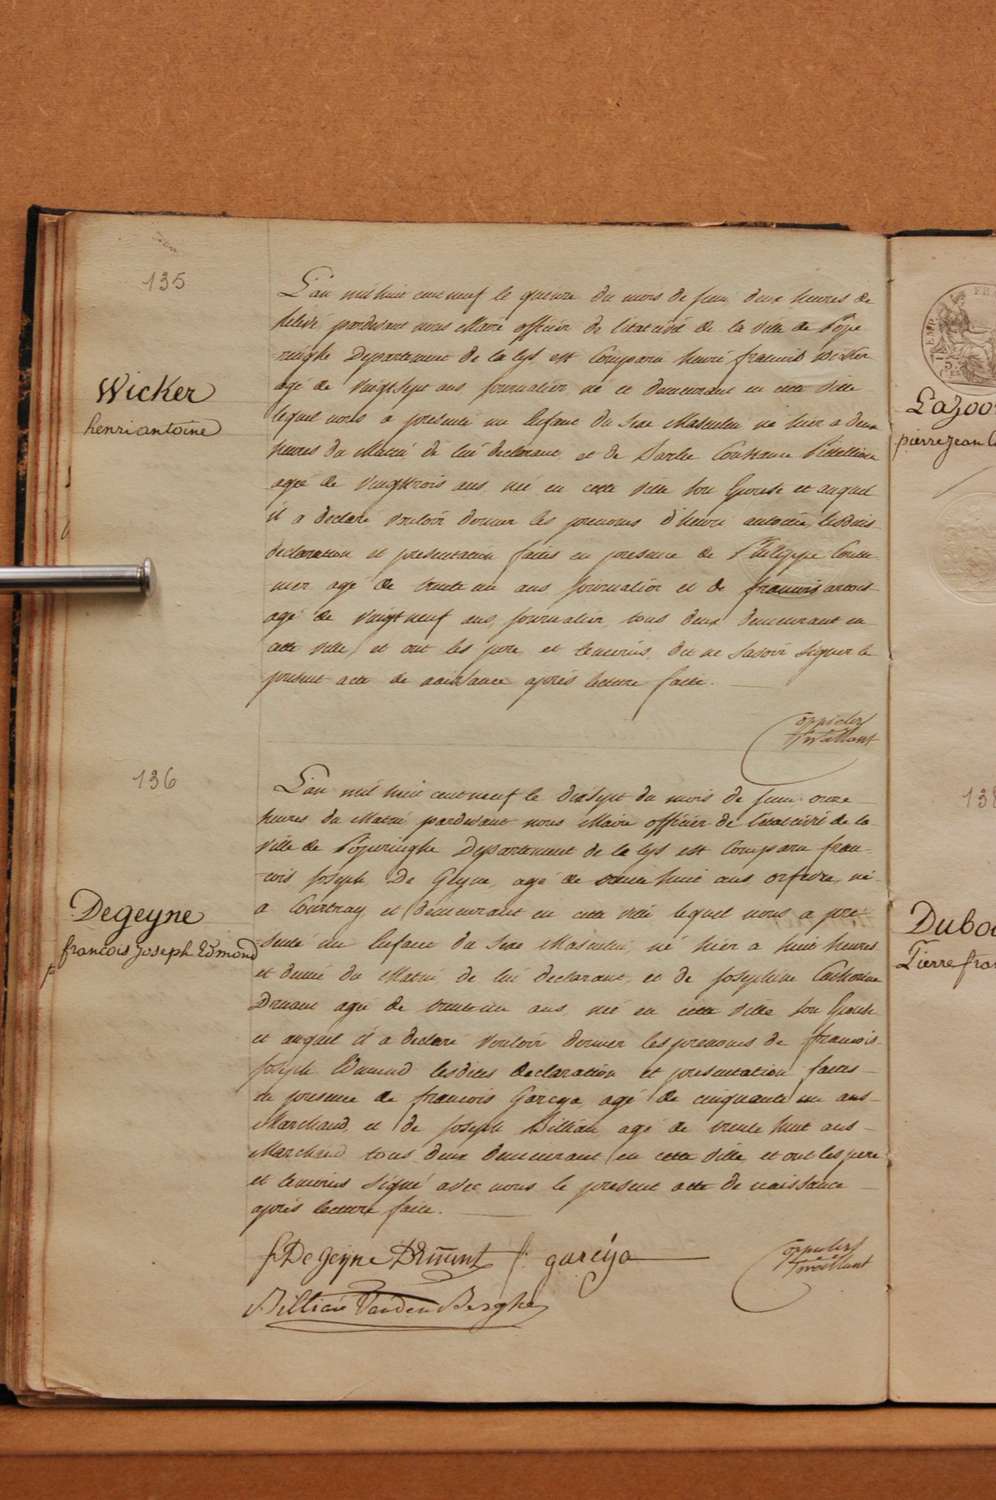 135
Wicker
henri antoine
L'an mil huit cent neuf le quinze du mois de juin deux heures de
relevé pardevant nous Maire officier de l'état civil de la ville de Pope
ringhe Departement de la Lys est Comparu henri francois wicker
agé de vingt sept ans journalier né et demeurant en cette ville
lequel nous a presenté un Enfant du sexe Masculin né hier a deux
heures du Matin de lui declarant et de Barbe Constance
agée de vingt trois ans née en cette ville son Epouse et auquel
il a declaré vouloir donner les prenoms d'henri antoine, lesdites
declaration et presentation faites en presence de Philippe
agé de trente un ans journalier et de francois
agé de vingt neuf ans, journalier, tous deux demeurant en
cette ville, et ont les pere et temoins, dit ne savoir signer le
present acte de naissance après lecture faite.
136
Degeyne
francois joseph Edmond
L'an mil huit cent neuf le dixsept du mois de juin onze
heures du Matin pardevant nous Maire officier de l'état civil de la
ville de Poperinghe Departement de la Lys est Comparu fran-
cois joseph De Geyne, agé de trente huit ans orfevre, né
a Courtray et demeurant en cette ville lequel nous a pre
senté un Enfant du sexe Masculin, né hier a huit heures
et demie du Matin de lui declarant, et de josephine Catherine
Druant agée de trente un ans née en cette ville son Epouse
et auquel il a declaré vouloir donner les prenoms de francois
joseph Edmond lesdites declaration et presentation faites
en presence de francois Garcya agé de cinquante un ans
Marchand, et de joseph Billiau agé de trente huit ans
Marchand tous deux demeurant en cette ville et ont les pere
et temoins signé avec nous le present acte de naissance
après lecture faite.
f De Geyne Druant f. garcya
Vanden Berghe
Lazoo
pierre jean
138
Dubo
Pierre fran